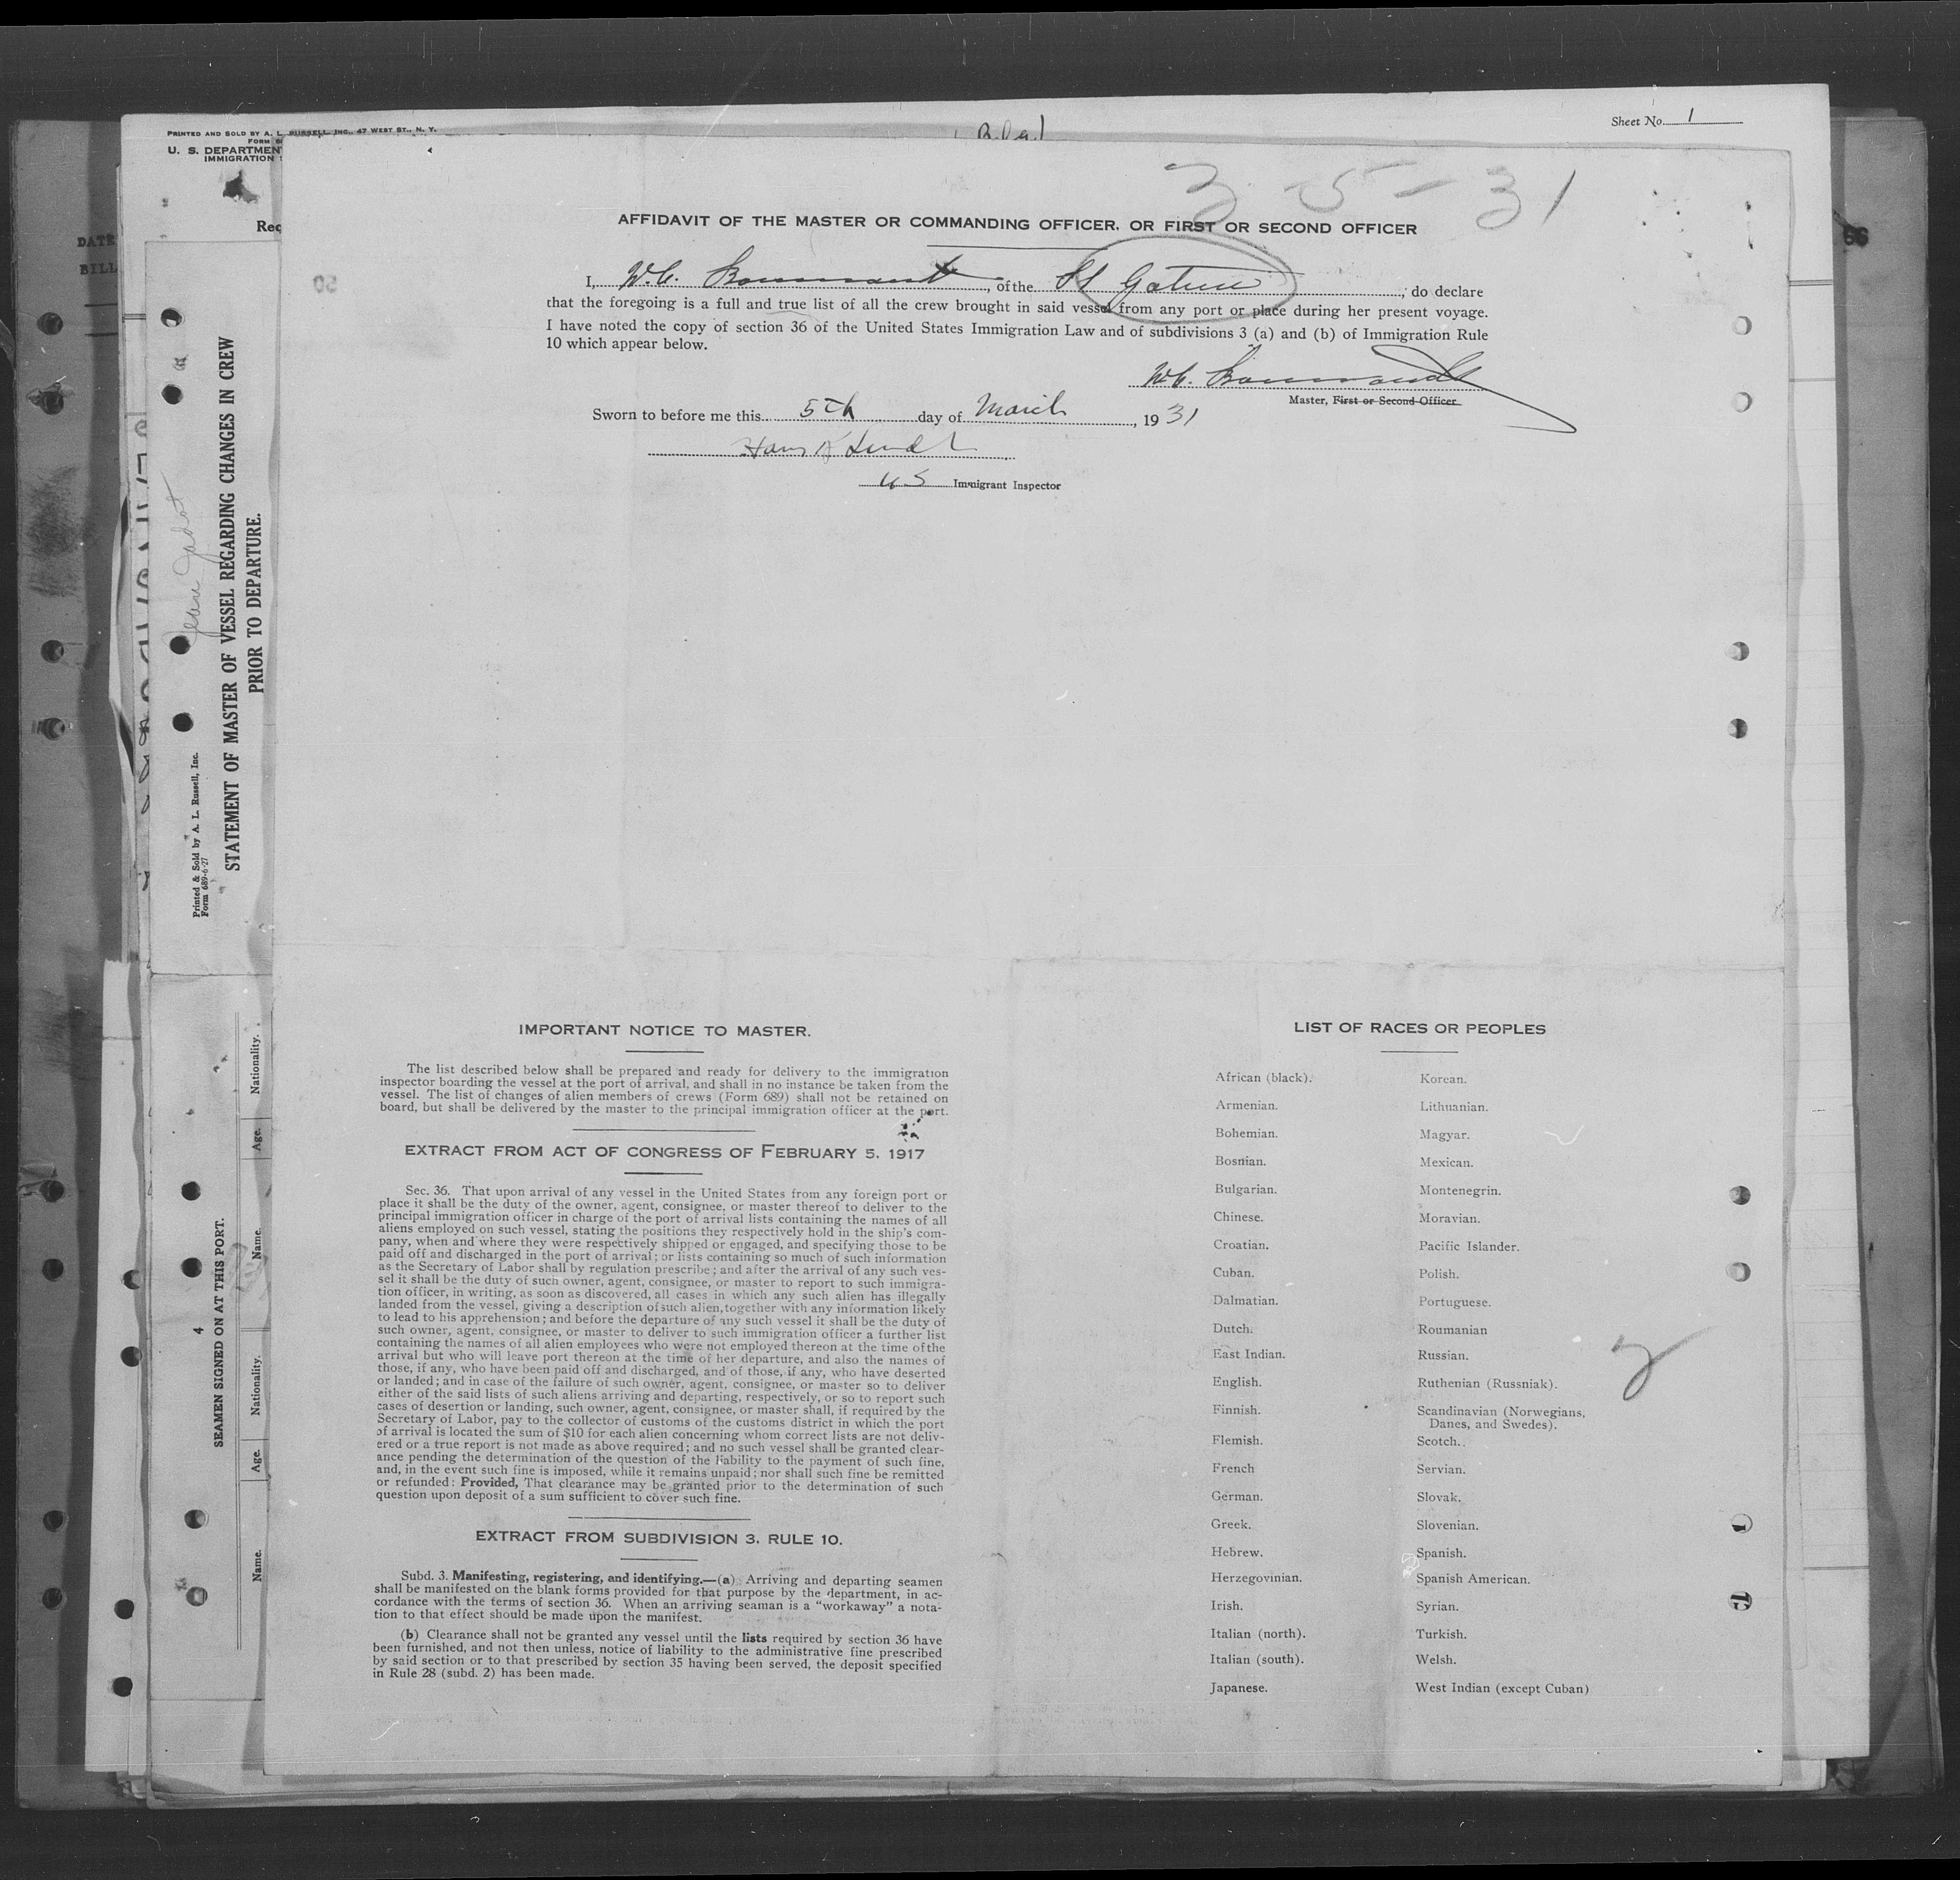 PRINTED AND SOLD BY A. L. RUSSELL, INC., 47 WEST ST., N. Y.
U. S. DEPARTMENT
IMMIGRATION
Sheet No. 1
Rec
3-5-31
AFFIDAVIT OF THE MASTER OR COMMANDING OFFICER, OR FIRST OR SECOND OFFICER
I, W. C. , of the Gatun , do declare
that the foregoing is a full and true list of all the crew brought in said vessel from any port or place during her present voyage.
I have noted the copy of section 36 of the United States Immigration Law and of subdivisions 3 (a) and (b) of Immigration Rule
10 which appear below.
W. C.
Master, First or Second Officer
Sworn to before me this 5th day of March , 1931
US Immigrant Inspector
Jean Jadot
STATEMENT OF MASTER OF VESSEL REGARDING CHANGES IN CREW
PRIOR TO DEPARTURE.
Printed & Sold by A. L. Russell, Inc.
Form 689-6-27
4
SEAMEN SIGNED ON AT THIS PORT.
Name. Age. Nationality. Name. Age. Nationality.
DATE
BILL
IMPORTANT NOTICE TO MASTER.
The list described below shall be prepared and ready for delivery to the immigration
inspector boarding the vessel at the port of arrival, and shall in no instance be taken from the
vessel. The list of changes of alien members of crews (Form 689) shall not be retained on
board, but shall be delivered by the master to the principal immigration officer at the port.
EXTRACT FROM ACT OF CONGRESS OF FEBRUARY 5, 1917
Sec. 36. That upon arrival of any vessel in the United States from any foreign port or
place it shall be the duty of the owner, agent, consignee, or master thereof to deliver to the
principal immigration officer in charge of the port of arrival lists containing the names of all
aliens employed on such vessel, stating the positions they respectively hold in the ship's com-
pany, when and where they were respectively shipped or engaged, and specifying those to be
paid off and discharged in the port of arrival; or lists containing so much of such information
as the Secretary of Labor shall by regulation prescribe; and after the arrival of any such ves-
sel it shall be the duty of such owner, agent, consignee, or master to report to such immigra-
tion officer, in writing, as soon as discovered, all cases in which any such alien has illegally
landed from the vessel, giving a description of such alien, together with any information likely
to lead to his apprehension; and before the departure of any such vessel it shall be the duty of
such owner, agent, consignee, or master to deliver to such immigration officer a further list
containing the names of all alien employees who were not employed thereon at the time of the
arrival but who will leave port thereon at the time of her departure, and also the names of
those, if any, who have been paid off and discharged, and of those, if any, who have deserted
or landed; and in case of the failure of such owner, agent, consignee, or master so to deliver
either of the said lists of such aliens arriving and departing, respectively, or so to report such
cases of desertion or landing, such owner, agent, consignee, or master shall, if required by the
Secretary of Labor, pay to the collector of customs of the customs district in which the port
of arrival is located the sum of $10 for each alien concerning whom correct lists are not deliv-
ered or a true report is not made as above required; and no such vessel shall be granted clear-
ance pending the determination of the question of the liability to the payment of such fine,
and, in the event such fine is imposed, while it remains unpaid; nor shall such fine be remitted
or refunded: Provided, That clearance may be granted prior to the determination of such
question upon deposit of a sum sufficient to cover such fine.
EXTRACT FROM SUBDIVISION 3, RULE 10.
Subd. 3. Manifesting, registering, and identifying.—(a) Arriving and departing seamen
shall be manifested on the blank forms provided for that purpose by the department, in ac-
cordance with the terms of section 36. When an arriving seaman is a "workaway" a nota-
tion to that effect should be made upon the manifest.
(b) Clearance shall not be granted any vessel until the lists required by section 36 have
been furnished, and not then unless, notice of liability to the administrative fine prescribed
by said section or to that prescribed by section 35 having been served, the deposit specified
in Rule 28 (subd. 2) has been made.
LIST OF RACES OR PEOPLES
African (black). Korean.
Armenian. Lithuanian.
Bohemian. Magyar.
Bosnian. Mexican.
Bulgarian. Montenegrin.
Chinese. Moravian.
Croatian. Pacific Islander.
Cuban. Polish.
Dalmatian. Portuguese.
Dutch. Roumanian
East Indian. Russian.
English. Ruthenian (Russniak).
Finnish. Scandinavian (Norwegians,
Danes, and Swedes).
Flemish. Scotch.
French Servian.
German. Slovak.
Greek. Slovenian.
Hebrew. Spanish.
Herzegovinian. Spanish American.
Irish. Syrian.
Italian (north). Turkish.
Italian (south). Welsh.
Japanese. West Indian (except Cuban)